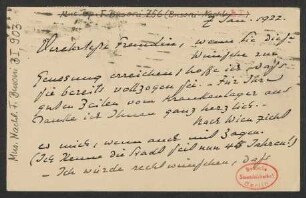 Mus. ep. F. Busoni 256 (Busoni-Nachl.
2 Jan 1922.
Verehrteste Freundin, wenn Sie diese
Wünsche zur
Genesung erreichen hoffe ich, dass
sie bereits vollzogen sei. – Für Ihre
guten Zeilen vom Krankenlager aus
danke ich Ihnen ganz herzlich. –
Nach Wien zieht
es mich, wenn auch mit Zagen.
(Ich kenne die Stadt seit nun 45 Jahren!)
– Ich würde recht wünschen, dass
Mus. Nachl. F. Busoni B I, 903